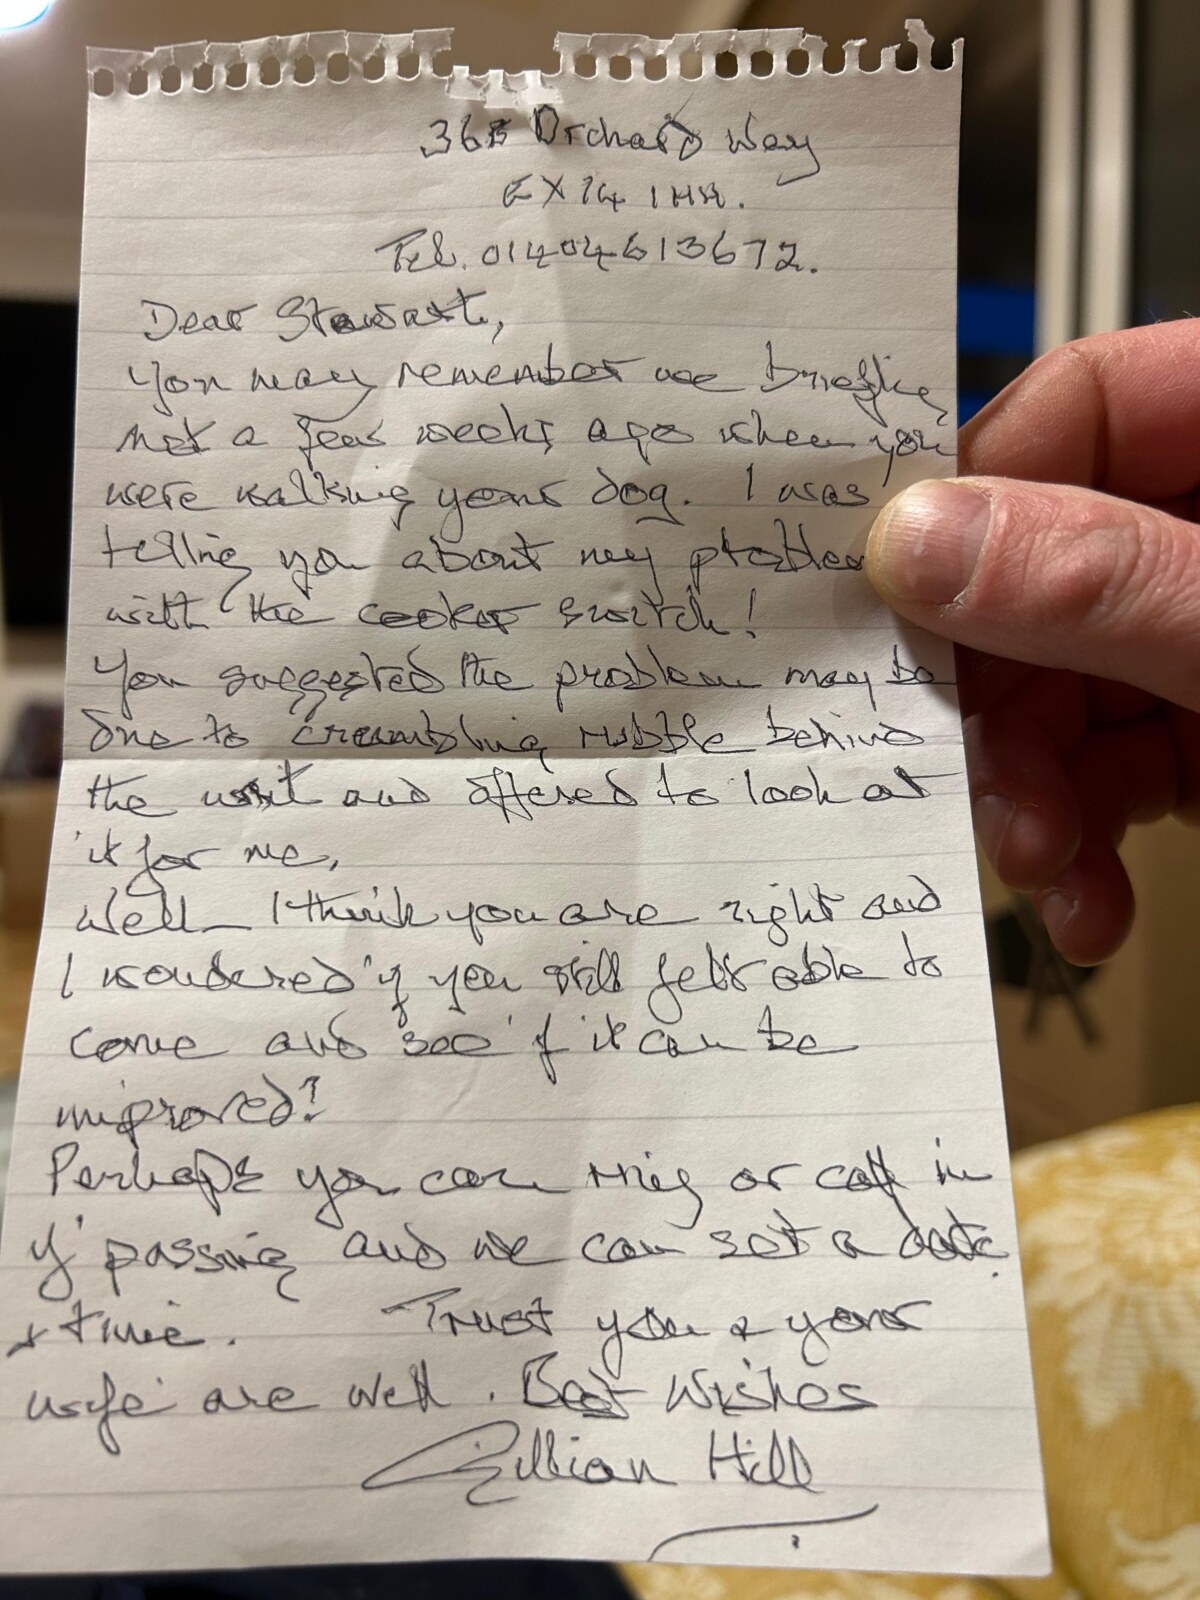 36B Orchard Way
EX14 1HH.
Tel. 01404613672.
Dear Stewart,
You may remember we briefly
met a few weeks ago when you
were walking your dog. I was
telling you about my problem
with the cooker switch!
You suggested the problem may be
due to crumbling rubble behind
the unit and offered to look at
it for me,
Well - I think you are right and
I wondered if you still felt able to
come and see if it can be
improved?
Perhaps you can ring or call in
if passing and we can set a date
& time. Trust you & your
wife are well. Best Wishes
Gillian Hill